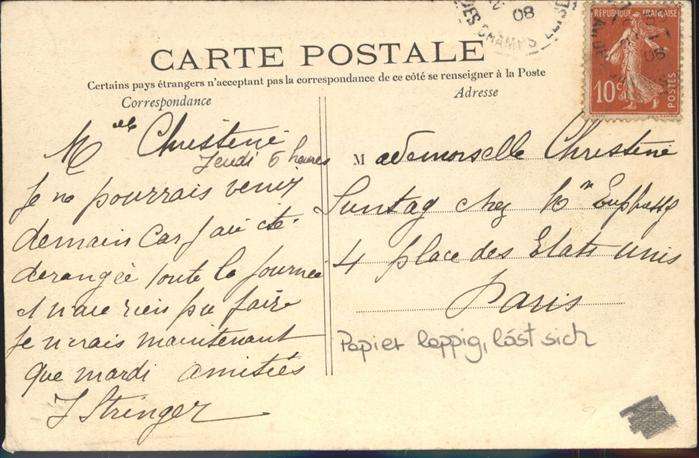 08
DES CHAMPS ELYSÉES
RÉPUBLIQUE FRANÇAISE
10c
POSTES
CARTE POSTALE
Certains pays étrangers n'acceptant pas la correspondance de ce côté se renseigner à la Poste
Correspondance
Adresse
Melle Christine
Jeudi 6 heures
Je ne pourrais venir
demain car j'ai été
derangée toute la journée
et n'aie rien pu faire
Je n'irais maintenant
que mardi amitiés
J Stringer
Mademoiselle Christine
Suntag chez Mme
4 place des Etats unis
Paris
Papier lappig, löst sich